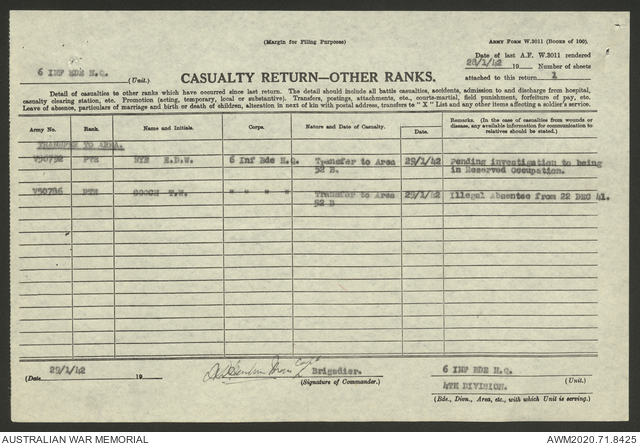 (Margin for Filing Purposes)
ARMY FORM W.3011 (BOOKS OF 100).
Date of last A.F. W.3011 rendered
28/1/42 19 Number of sheets
attached to this return 1
6 INF BDE H.Q. (Unit.)
CASUALTY RETURN—OTHER RANKS.
Detail of casualties to other ranks which have occurred since last return. The detail should include all battle casualties, accidents, admission to and discharge from hospital,
casualty clearing station, etc. Promotion (acting, temporary, local or substantive). Transfers, postings, attachments, etc., courts-martial, field punishment, forfeiture of pay, etc.
Leave of absence, particulars of marriage and birth or death of children, alteration in next of kin with postal address, transfers to "X" List and any other items affecting a soldier's service.
Army No. Rank. Name and Initials. Corps. Nature and Date of Casualty. Date. Remarks. (In the case of casualties from wounds or
disease, any available information for communication to
relatives should be stated.)
TRANSFER TO AREA.
V50792 PTE NYE E.D.W. 6 Inf Bde H.Q. Transfer to Area 29/1/42 Pending investigation to being
52 B. in Reserved Occupation.
V50786 PTE GOOCH T.W. " " " " Transfer to Area 29/1/42 Illegal Absentee from 22 DEC 41.
52 B
(Date 29/1/42 19 Capt Brigadier. 6 INF BDE H.Q. (Unit.)
(Signature of Commander.)
4TH DIVISION.
(Bde., Divn., Area, etc., with which Unit is serving.)
AUSTRALIAN WAR MEMORIAL AWM2020.71.8425